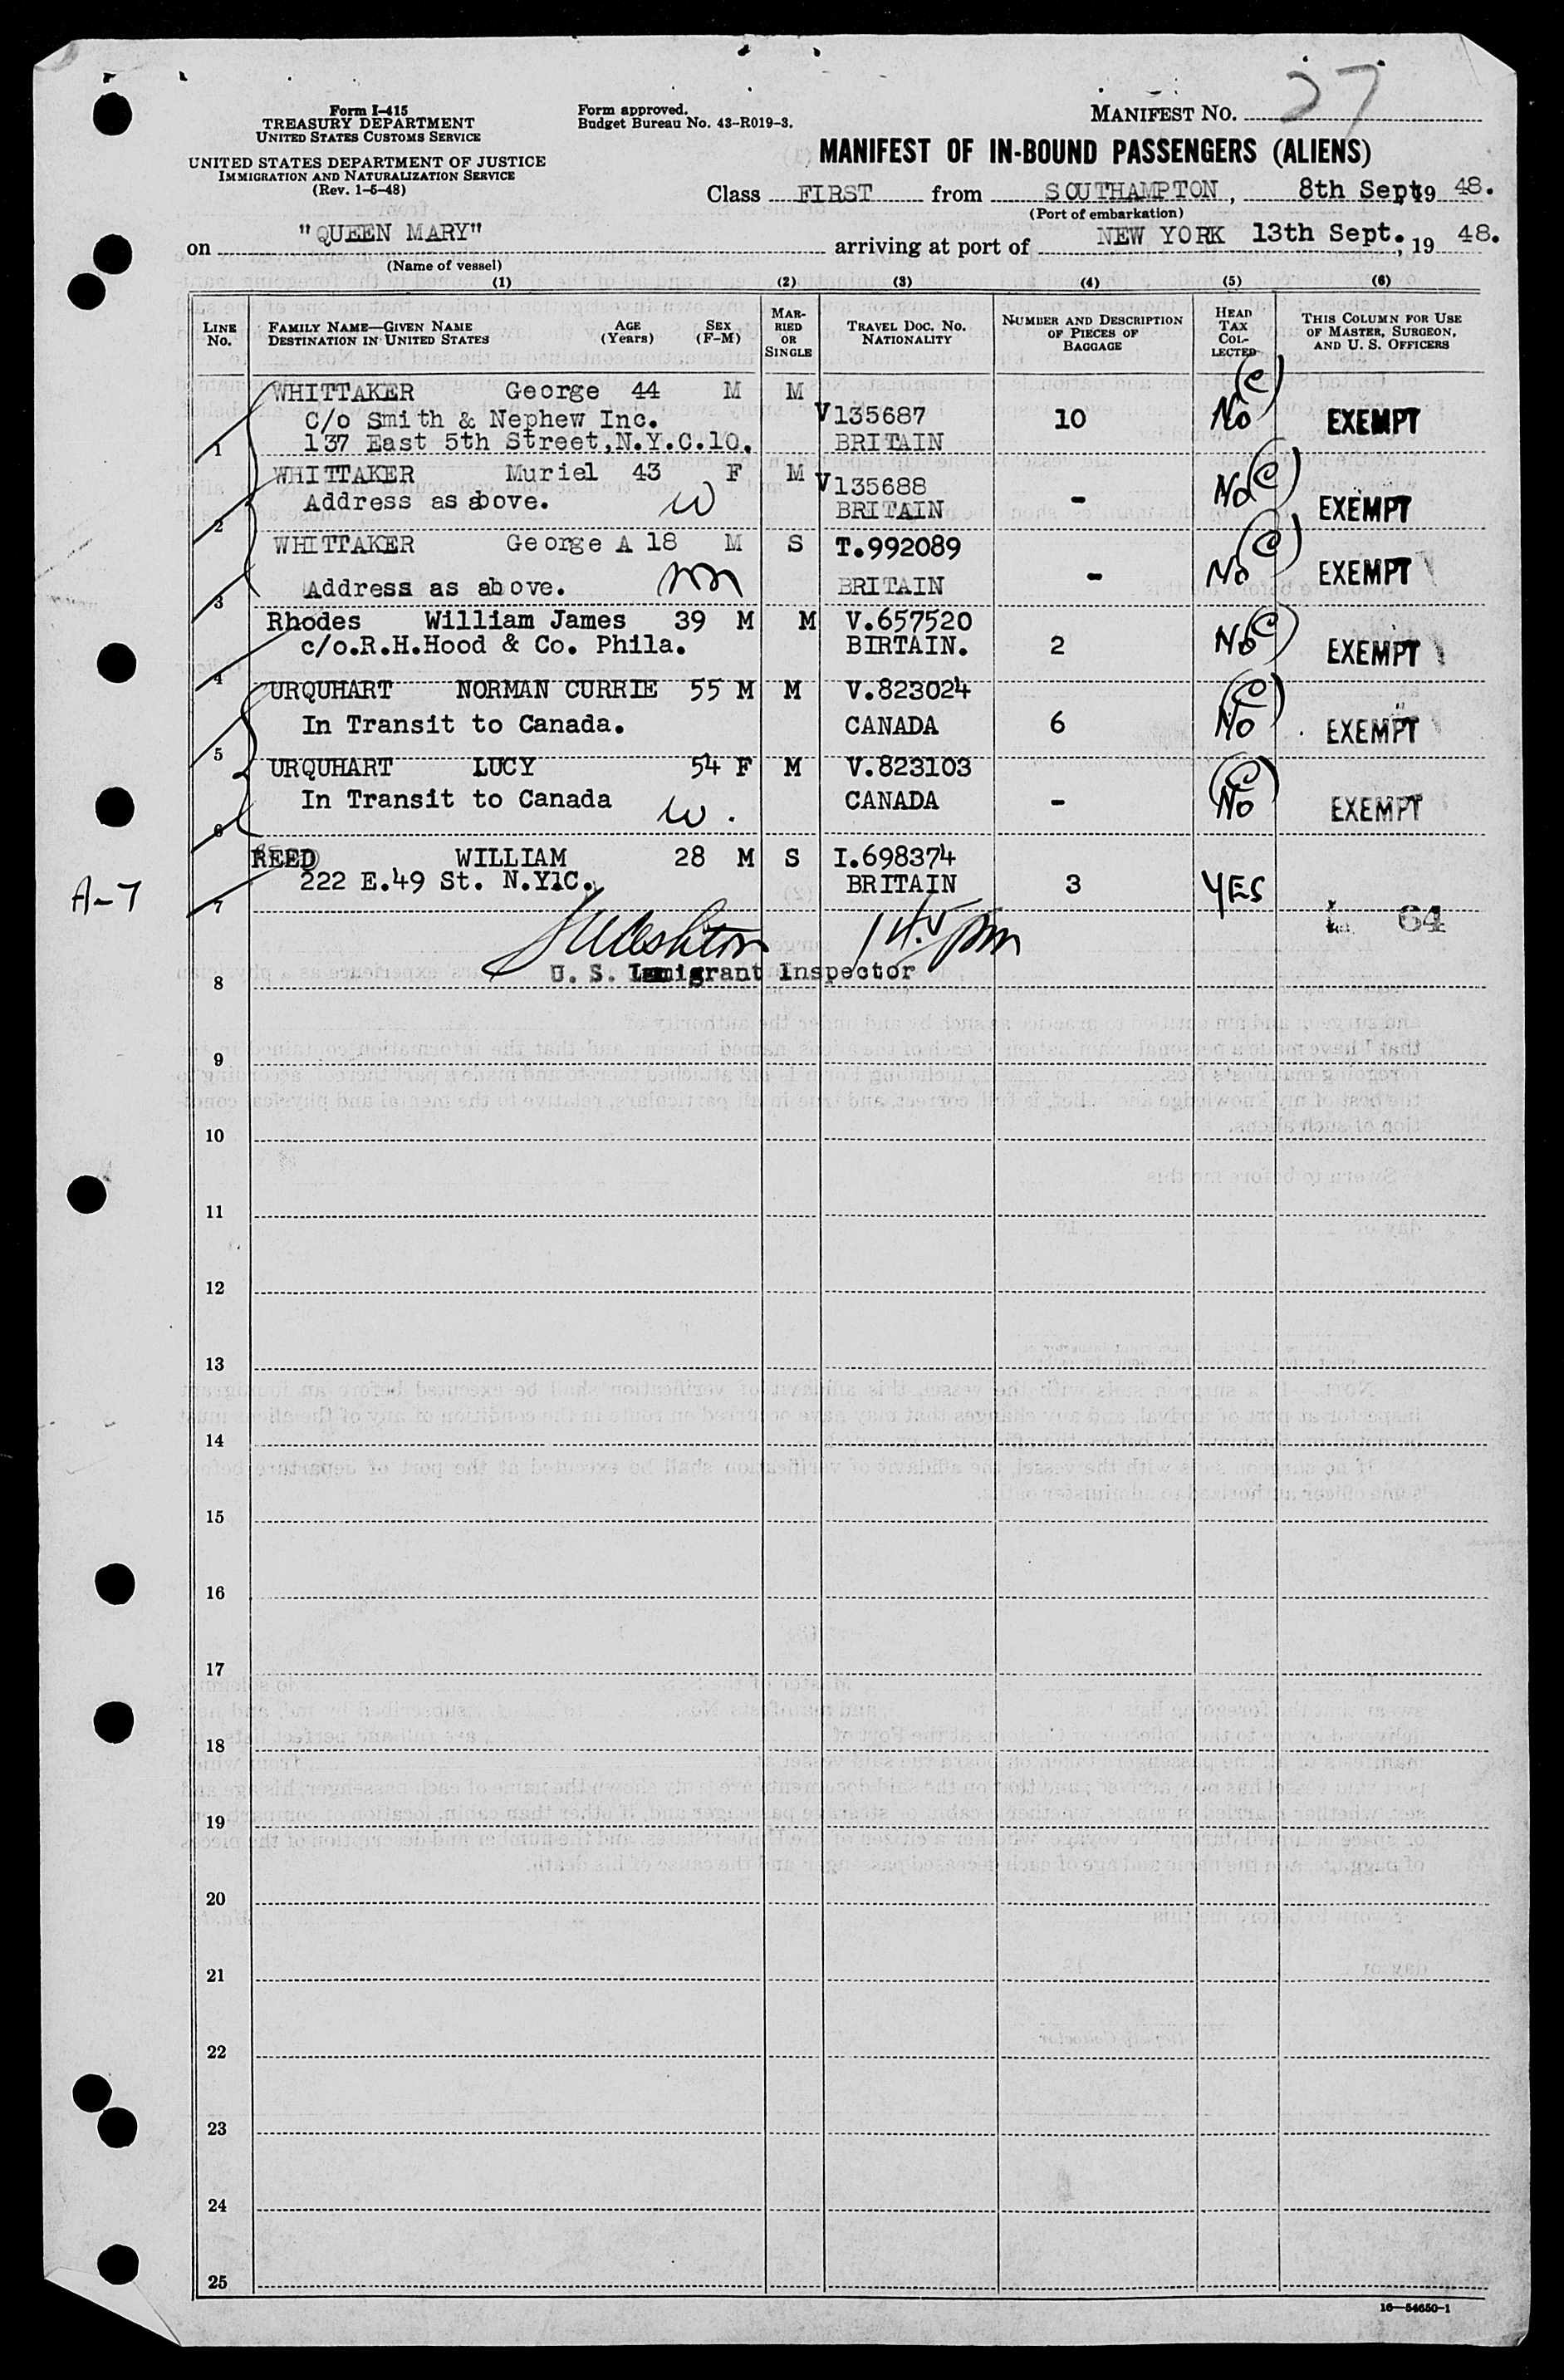 Form I-415
TREASURY DEPARTMENT
UNITED STATES CUSTOMS SERVICE
UNITED STATES DEPARTMENT OF JUSTICE
IMMIGRATION AND NATURALIZATION SERVICE
(Rev. 1-5-48)
Form approved.
Budget Bureau No. 43-R019-3.
MANIFEST NO. 27
MANIFEST OF IN-BOUND PASSENGERS (ALIENS)
Class FIRST from SOUTHAMPTON, 8th Sept, 19 48.
(Port of embarkation)
on "QUEEN MARY" arriving at port of NEW YORK 13th Sept., 19 48.
(Name of vessel)
(1) (2) (3) (4) (5) (6)
LINE No.
FAMILY NAME—GIVEN NAME
DESTINATION IN UNITED STATES
AGE (Years)
SEX (F-M)
MARRIED OR SINGLE
TRAVEL DOC. NO.
NATIONALITY
NUMBER AND DESCRIPTION OF PIECES OF BAGGAGE
HEAD TAX COLLECTED
THIS COLUMN FOR USE OF MASTER, SURGEON, AND U. S. OFFICERS
WHITTAKER George 44 M M V135687 10 No (C) EXEMPT
C/o Smith & Nephew Inc.
1 137 East 5th Street,N.Y.C.10. BRITAIN
WHITTAKER Muriel 43 F M V135688 - No (C) EXEMPT
2 Address as above. W BRITAIN
WHITTAKER George A 18 M S T.992089 - No (C) EXEMPT
3 Address as above. BRITAIN
Rhodes William James 39 M M V.657520 2 No (C) EXEMPT
4 c/o.R.H.Hood & Co. Phila. BIRTAIN.
URQUHART NORMAN CURRIE 55 M M V.823024 6 No (C) EXEMPT
5 In Transit to Canada. CANADA
URQUHART LUCY 54 F M V.823103 - No (C) EXEMPT
6 In Transit to Canada W. CANADA
REED WILLIAM 28 M S I.698374 3 YES
A-7
7 222 E.49 St. N.Y1C. BRITAIN
64
8 U. S. Immigrant Inspector
9
10
11
12
13
14
15
16
17
18
19
20
21
22
23
24
25
16—54650-1